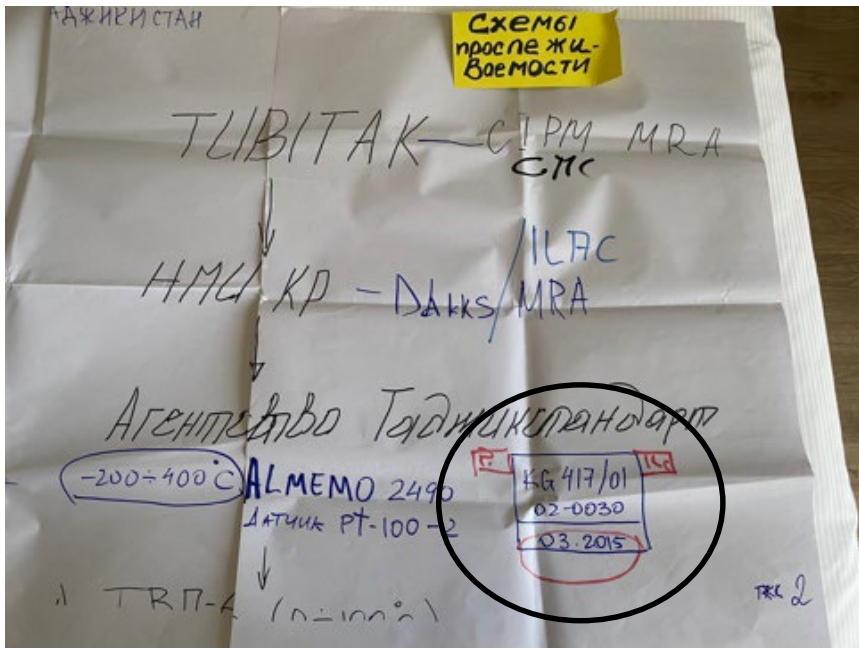 АДЖИКИСТАН
Схемы
просле жи-
ваемости
TUBITAK — CIPM MRA
CMC
НМЦ КР – DAkkS / ILAC
MRA
Агентство Таджикстандарт
-200÷400°C ALMEMO 2490
ДАТЧИК PT-100-2
KG 417/01
02-0030
03.2015
TJK 2